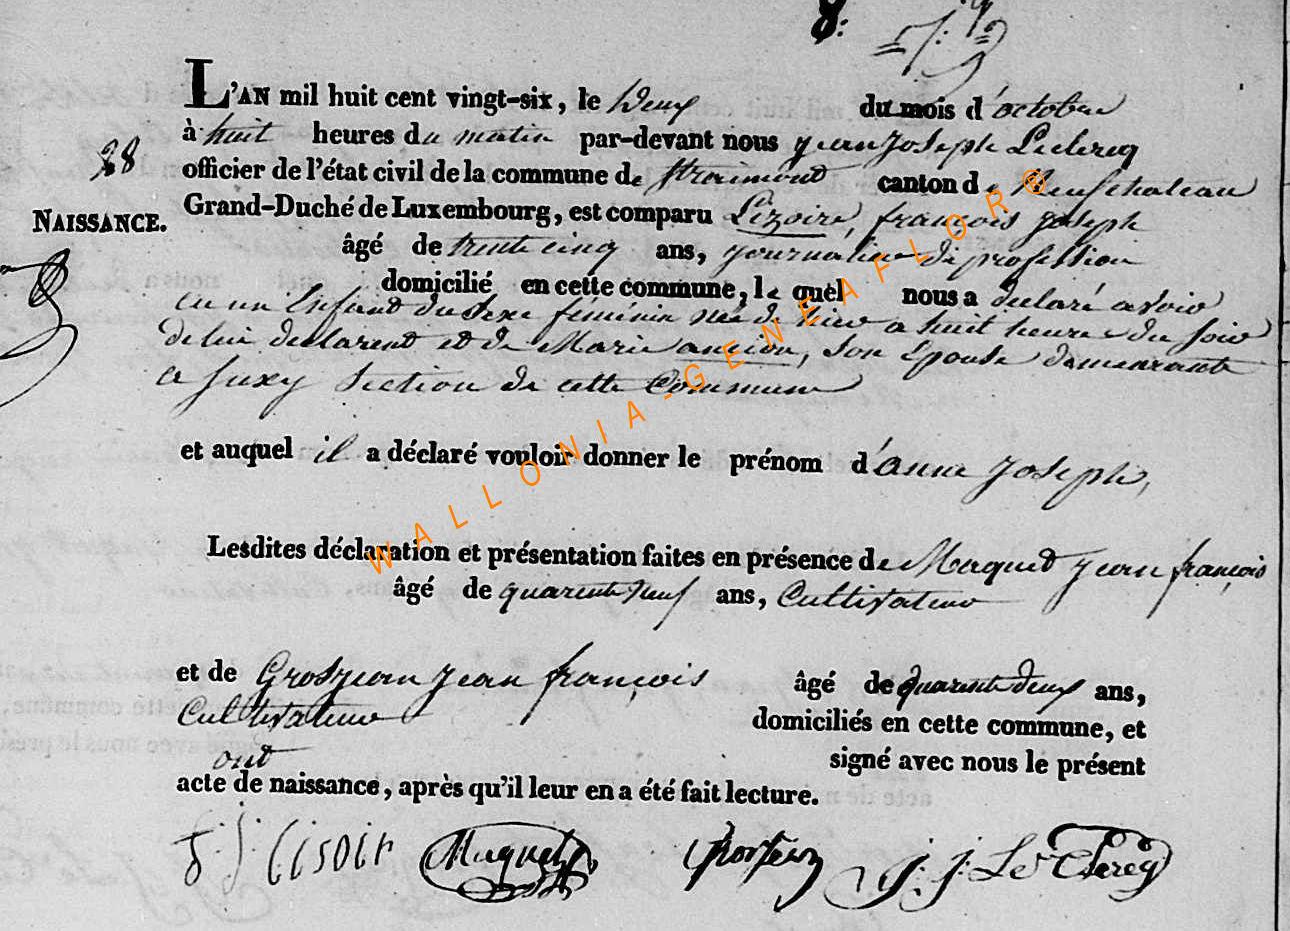 8:
L'AN mil huit cent vingt-six, le deux du mois d'octobre
à huit heures du matin par-devant nous jean joseph Leclercq
38
officier de l'état civil de la commune de Straimont canton de Neufchateau
NAISSANCE.
Grand-Duché de Luxembourg, est comparu Lizoire, françois joseph
âgé de trente cinq ans, journalier de profession
domicilié en cette commune, le quel nous a declaré avoir
eu un Enfant du Sexe féminin née d'hier a huit heure du soir
de lui declarent et de Marie ancion, son Epouse demeurante
a Suxy Section de cette Commune
et auquel il a déclaré vouloir donner le prénom d'anne Joseph,
Lesdites déclaration et présentation faites en présence de Maquet jean françois
âgé de quarente neuf ans, Cultivateur
et de Grosjean jean françois âgé de quarente deux ans,
Cultivateur domiciliés en cette commune, et
ont signé avec nous le présent
acte de naissance, après qu'il leur en a été fait lecture.
Maquet J. J. Le Clercq
WALLONIA-GENEAFLOR®